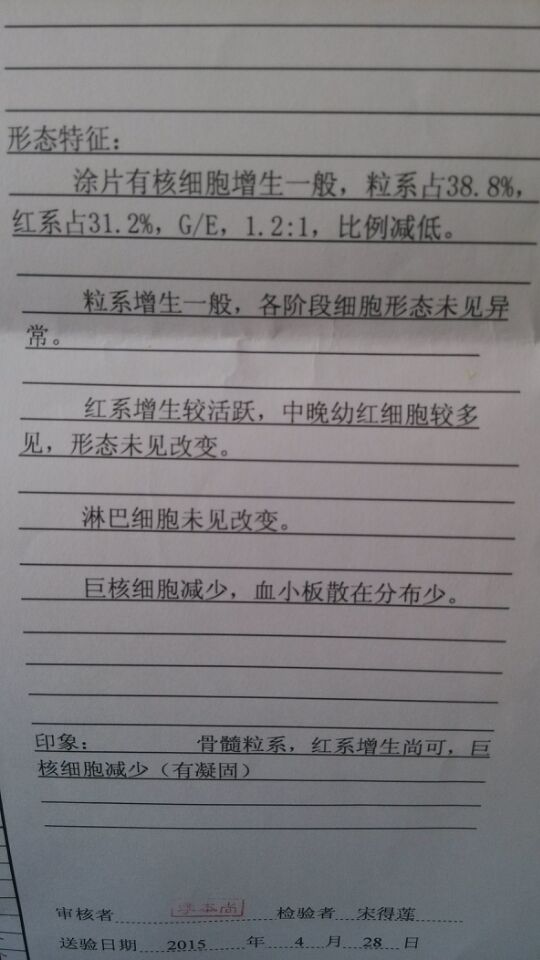 形态特征：
涂片有核细胞增生一般，粒系占38.8%，
红系占31.2%，G/E，1.2:1，比例减低。
粒系增生一般，各阶段细胞形态未见异
常。
红系增生较活跃，中晚幼红细胞较多
见，形态未见改变。
淋巴细胞未见改变。
巨核细胞减少，血小板散在分布少。
印象： 骨髓粒系，红系增生尚可，巨
核细胞减少（有凝固）
审核者 检验者 宋得莲
送验日期 2015 年 4 月 28 日